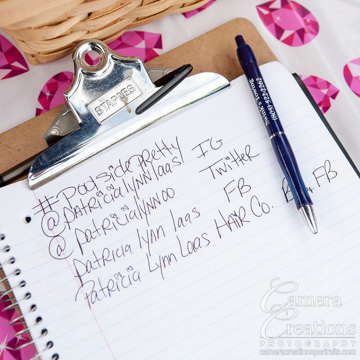 STAPLES
#poolsidepretty
@patricialynnlaas IG
@patricialynn00 Twitter
patricia lynn laas FB
Patricia Lynn Laas Hair Co. FB
Camera
Creations
PHOTOGRAPHY
cameracreationsportraits.com